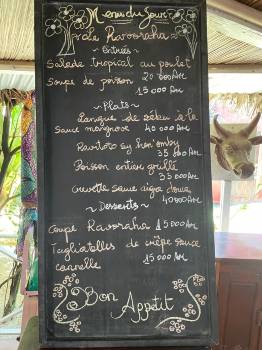 Menu du Jour
Ole Ravoraha
~ Entrées ~
Salade tropical au poulet
20 000 Ar
Soupe de poisson
15 000 Ar
~ Plats ~
Langue de zébu à la
sauce mangrove 40 000 Ar
Ravitoto sy hen'omby
35 000 Ar
Poisson entier grillé
35 000 Ar
Crevette sauce aigre douce
40 000 Ar
~ Desserts ~
Coupe Ravoraha 15 000 Ar
Tagliatelles de crêpe sauce
cannelle 15 000 Ar
Bon Appétit